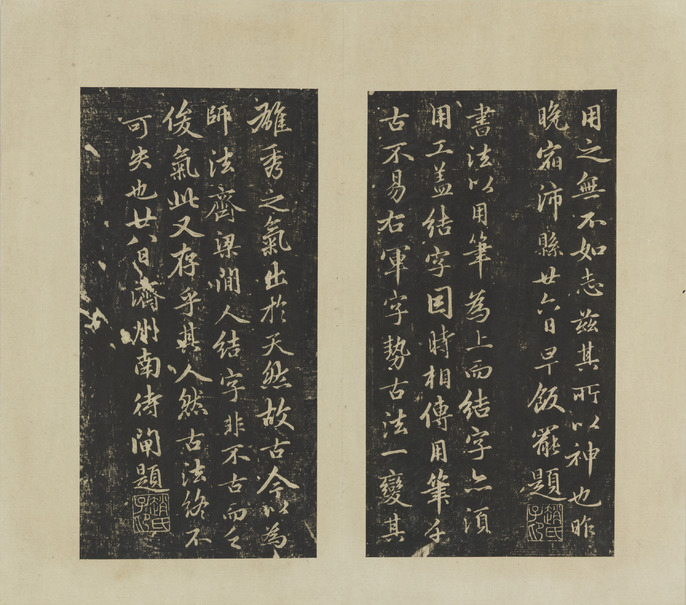 用之無不如志茲其所以神也昨
晚宿沛縣廿六日早飯罷題
趙氏子昂
書法以用筆為上而結字亦須
用工蓋結字因時相傳用筆千
古不易右軍字勢古法一變其
雄秀之氣出於天然故古今以為
師法齊梁間人結字非不古而乏
俊氣此又存乎其人然古法終不
可失也廿八日濟州南待閘題
趙氏子昂